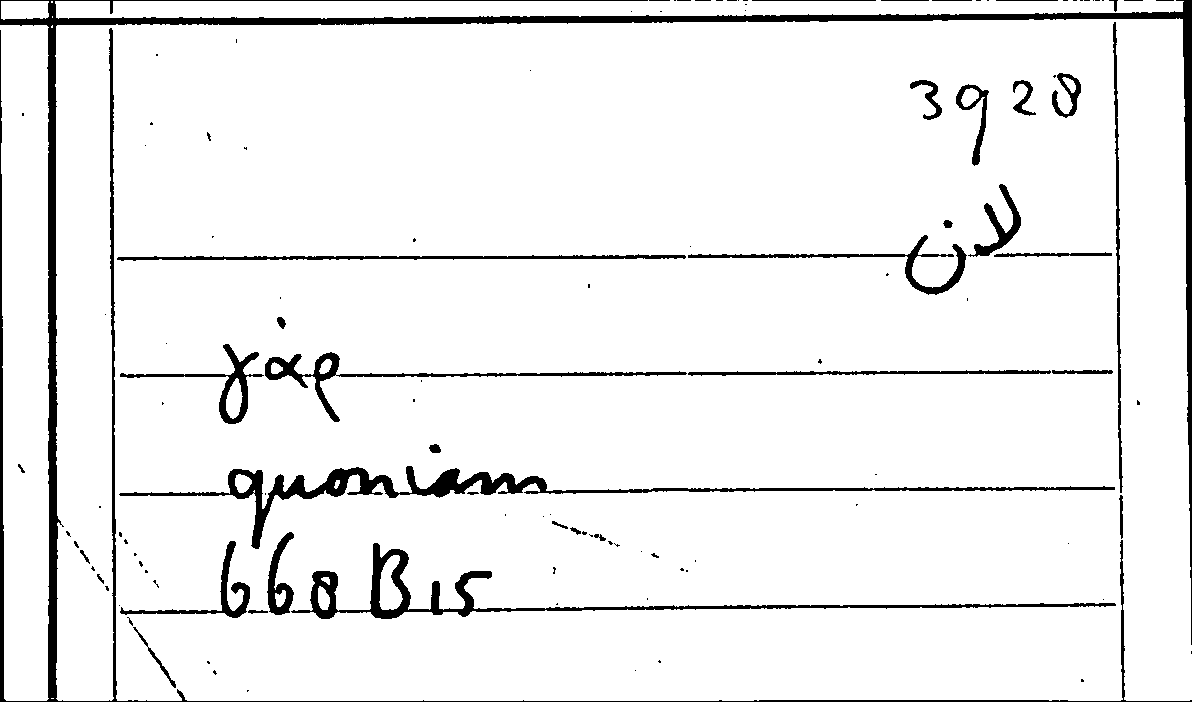 3928
لان
γάρ
quoniam
668 B 15